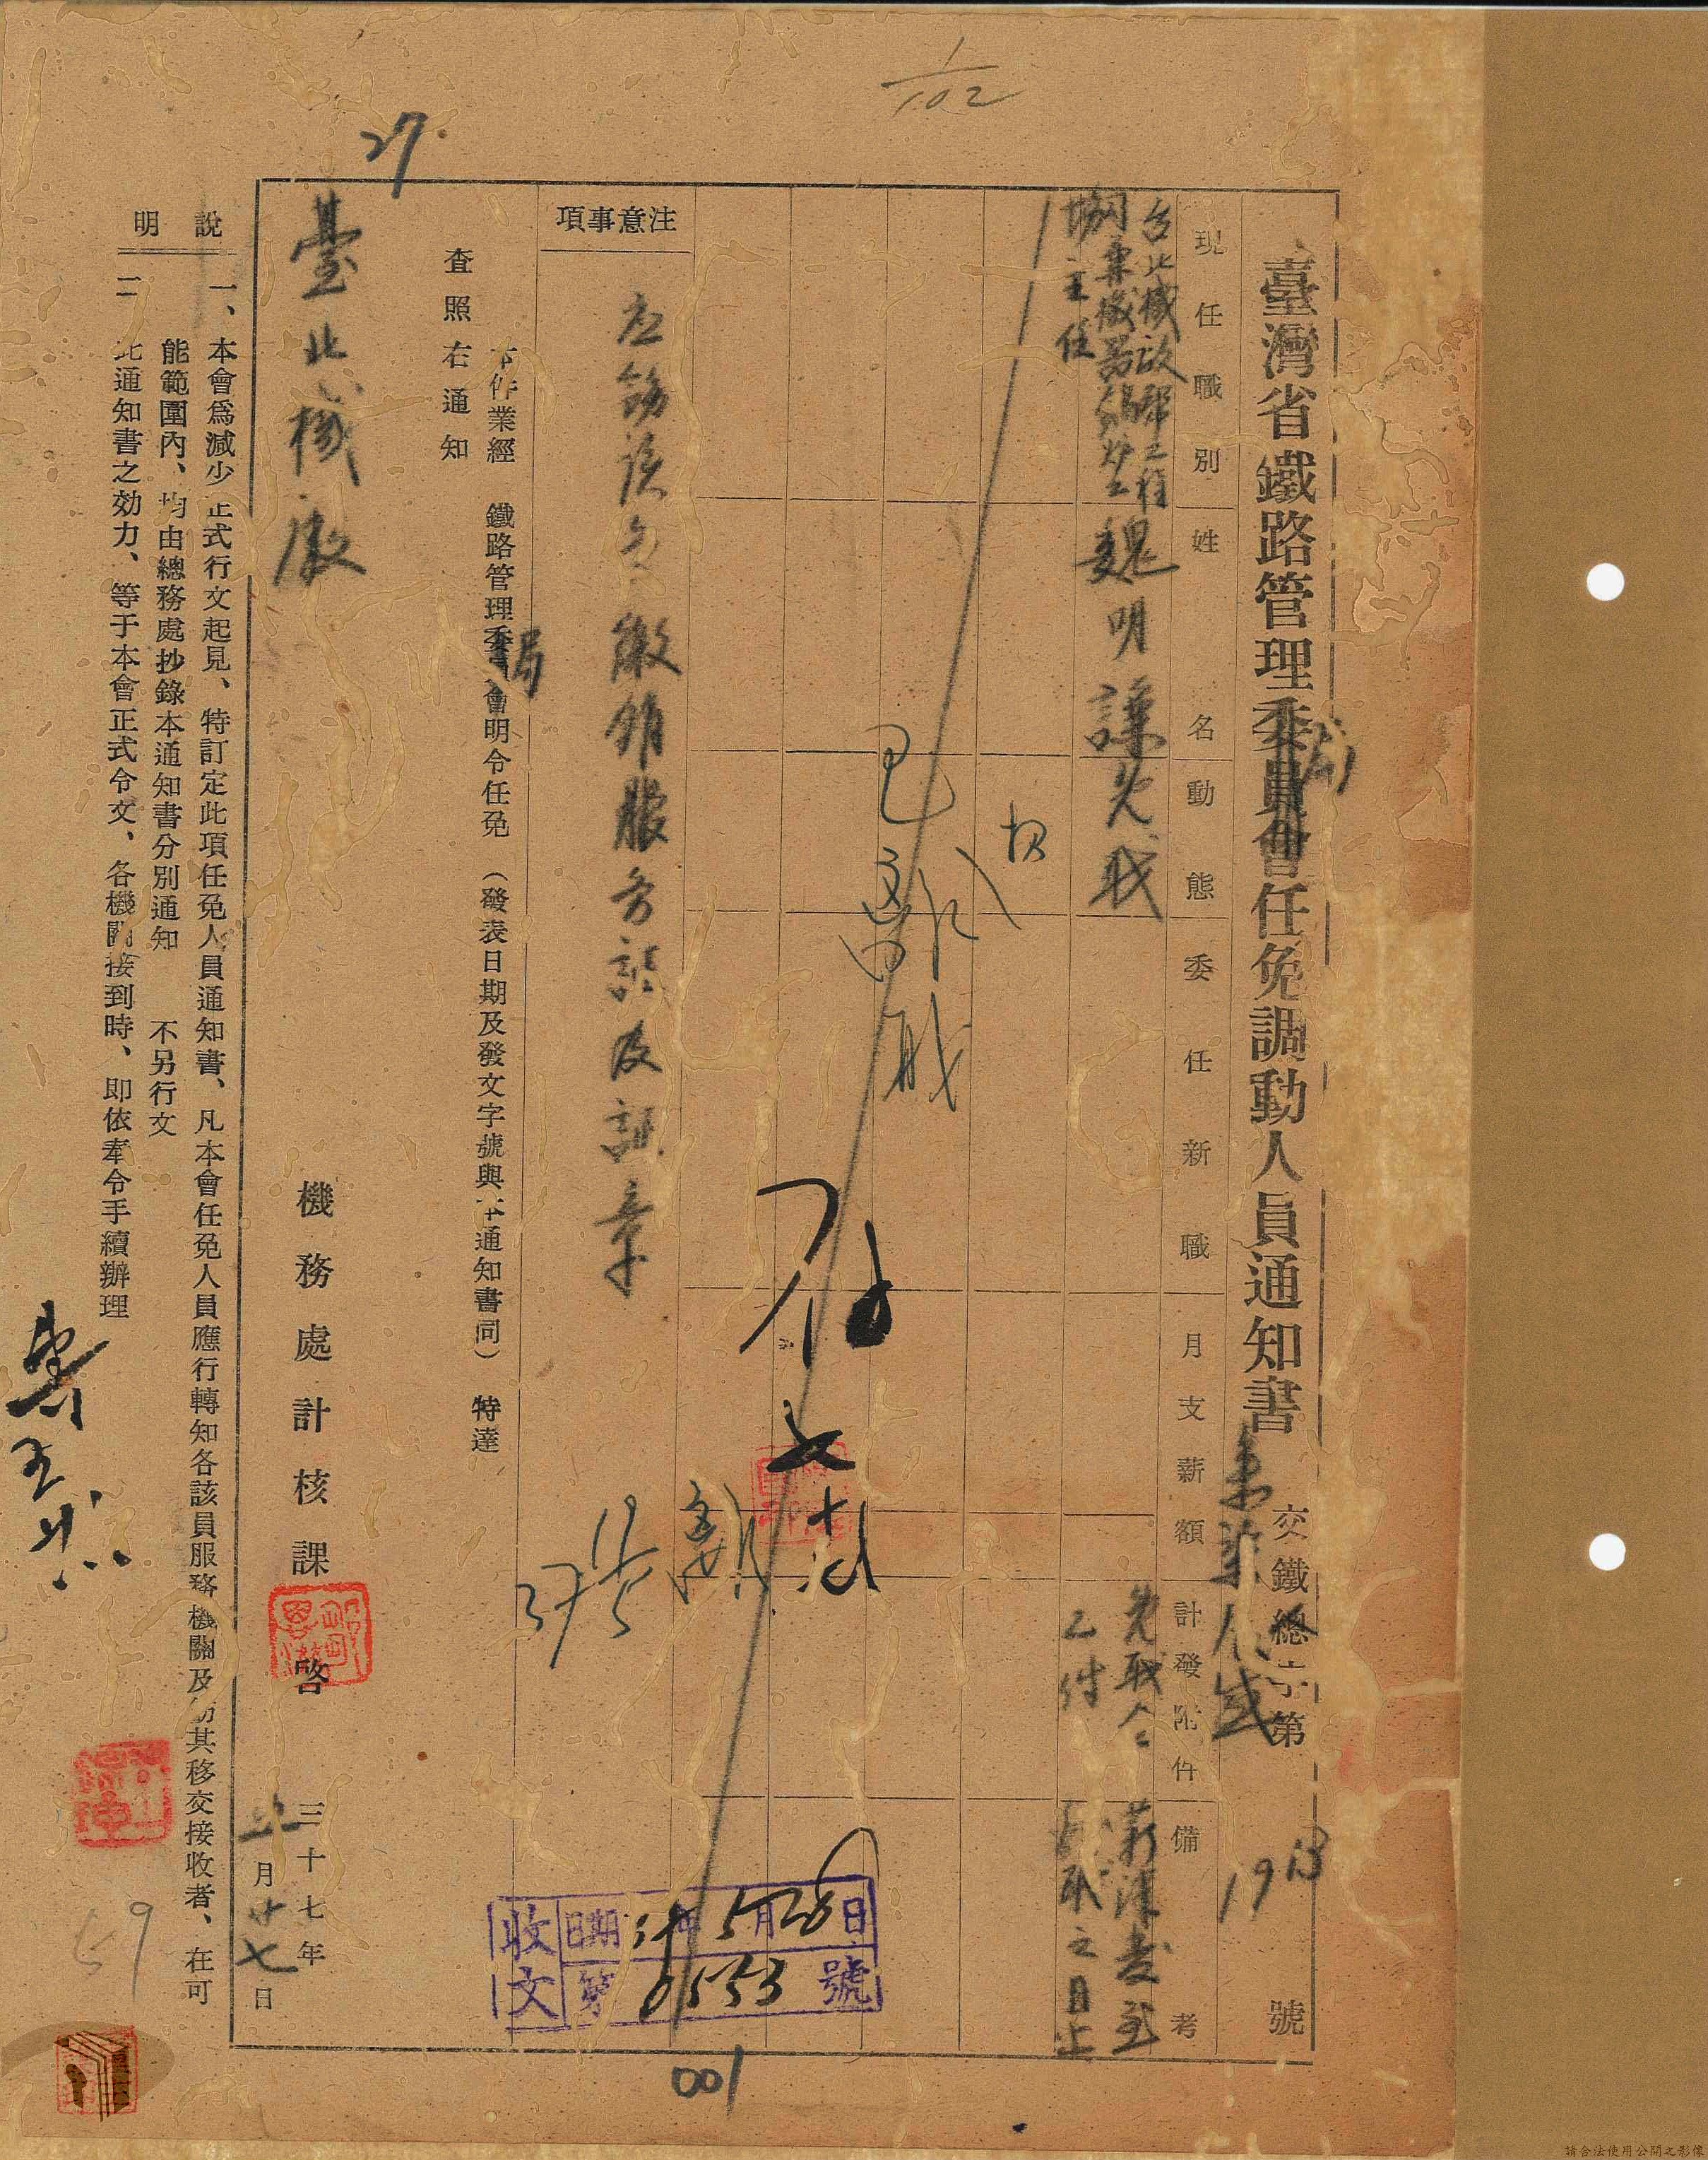 1/102
27
臺灣省鐵路管理委員會任免調動人員通知書
局
交鐵總字第 號
現任職別
姓名
動態
委任新職
月支薪額
計發附件
備考
台北機廠幫工程
司兼機器鍋爐工
場主任
魏明謙
免職
免職令
乙件
薪津發至
之日止
已離職
注意事項
应飭該員繳銷服务証及証章
本件業經 鐵路管理委員會明令任免(發表日期及發文字號與本通知書同) 特達
局
查照右通知
臺北機廠
機務處計核課 啓
三十七年
五月廿七日
收文
日期 37年5月28日
第0553號
說明
一、本會爲減少正式行文起見、特訂定此項任免人員通知書、凡本會任免人員應行轉知各該員服務機關及飭其移交接收者、在可
能範圍內、均由總務處抄錄本通知書分別通知 不另行文
二 此通知書之効力、等于本會正式令文、各機關接到時、即依奉令手續辦理
59
001
請合法使用公開之影像